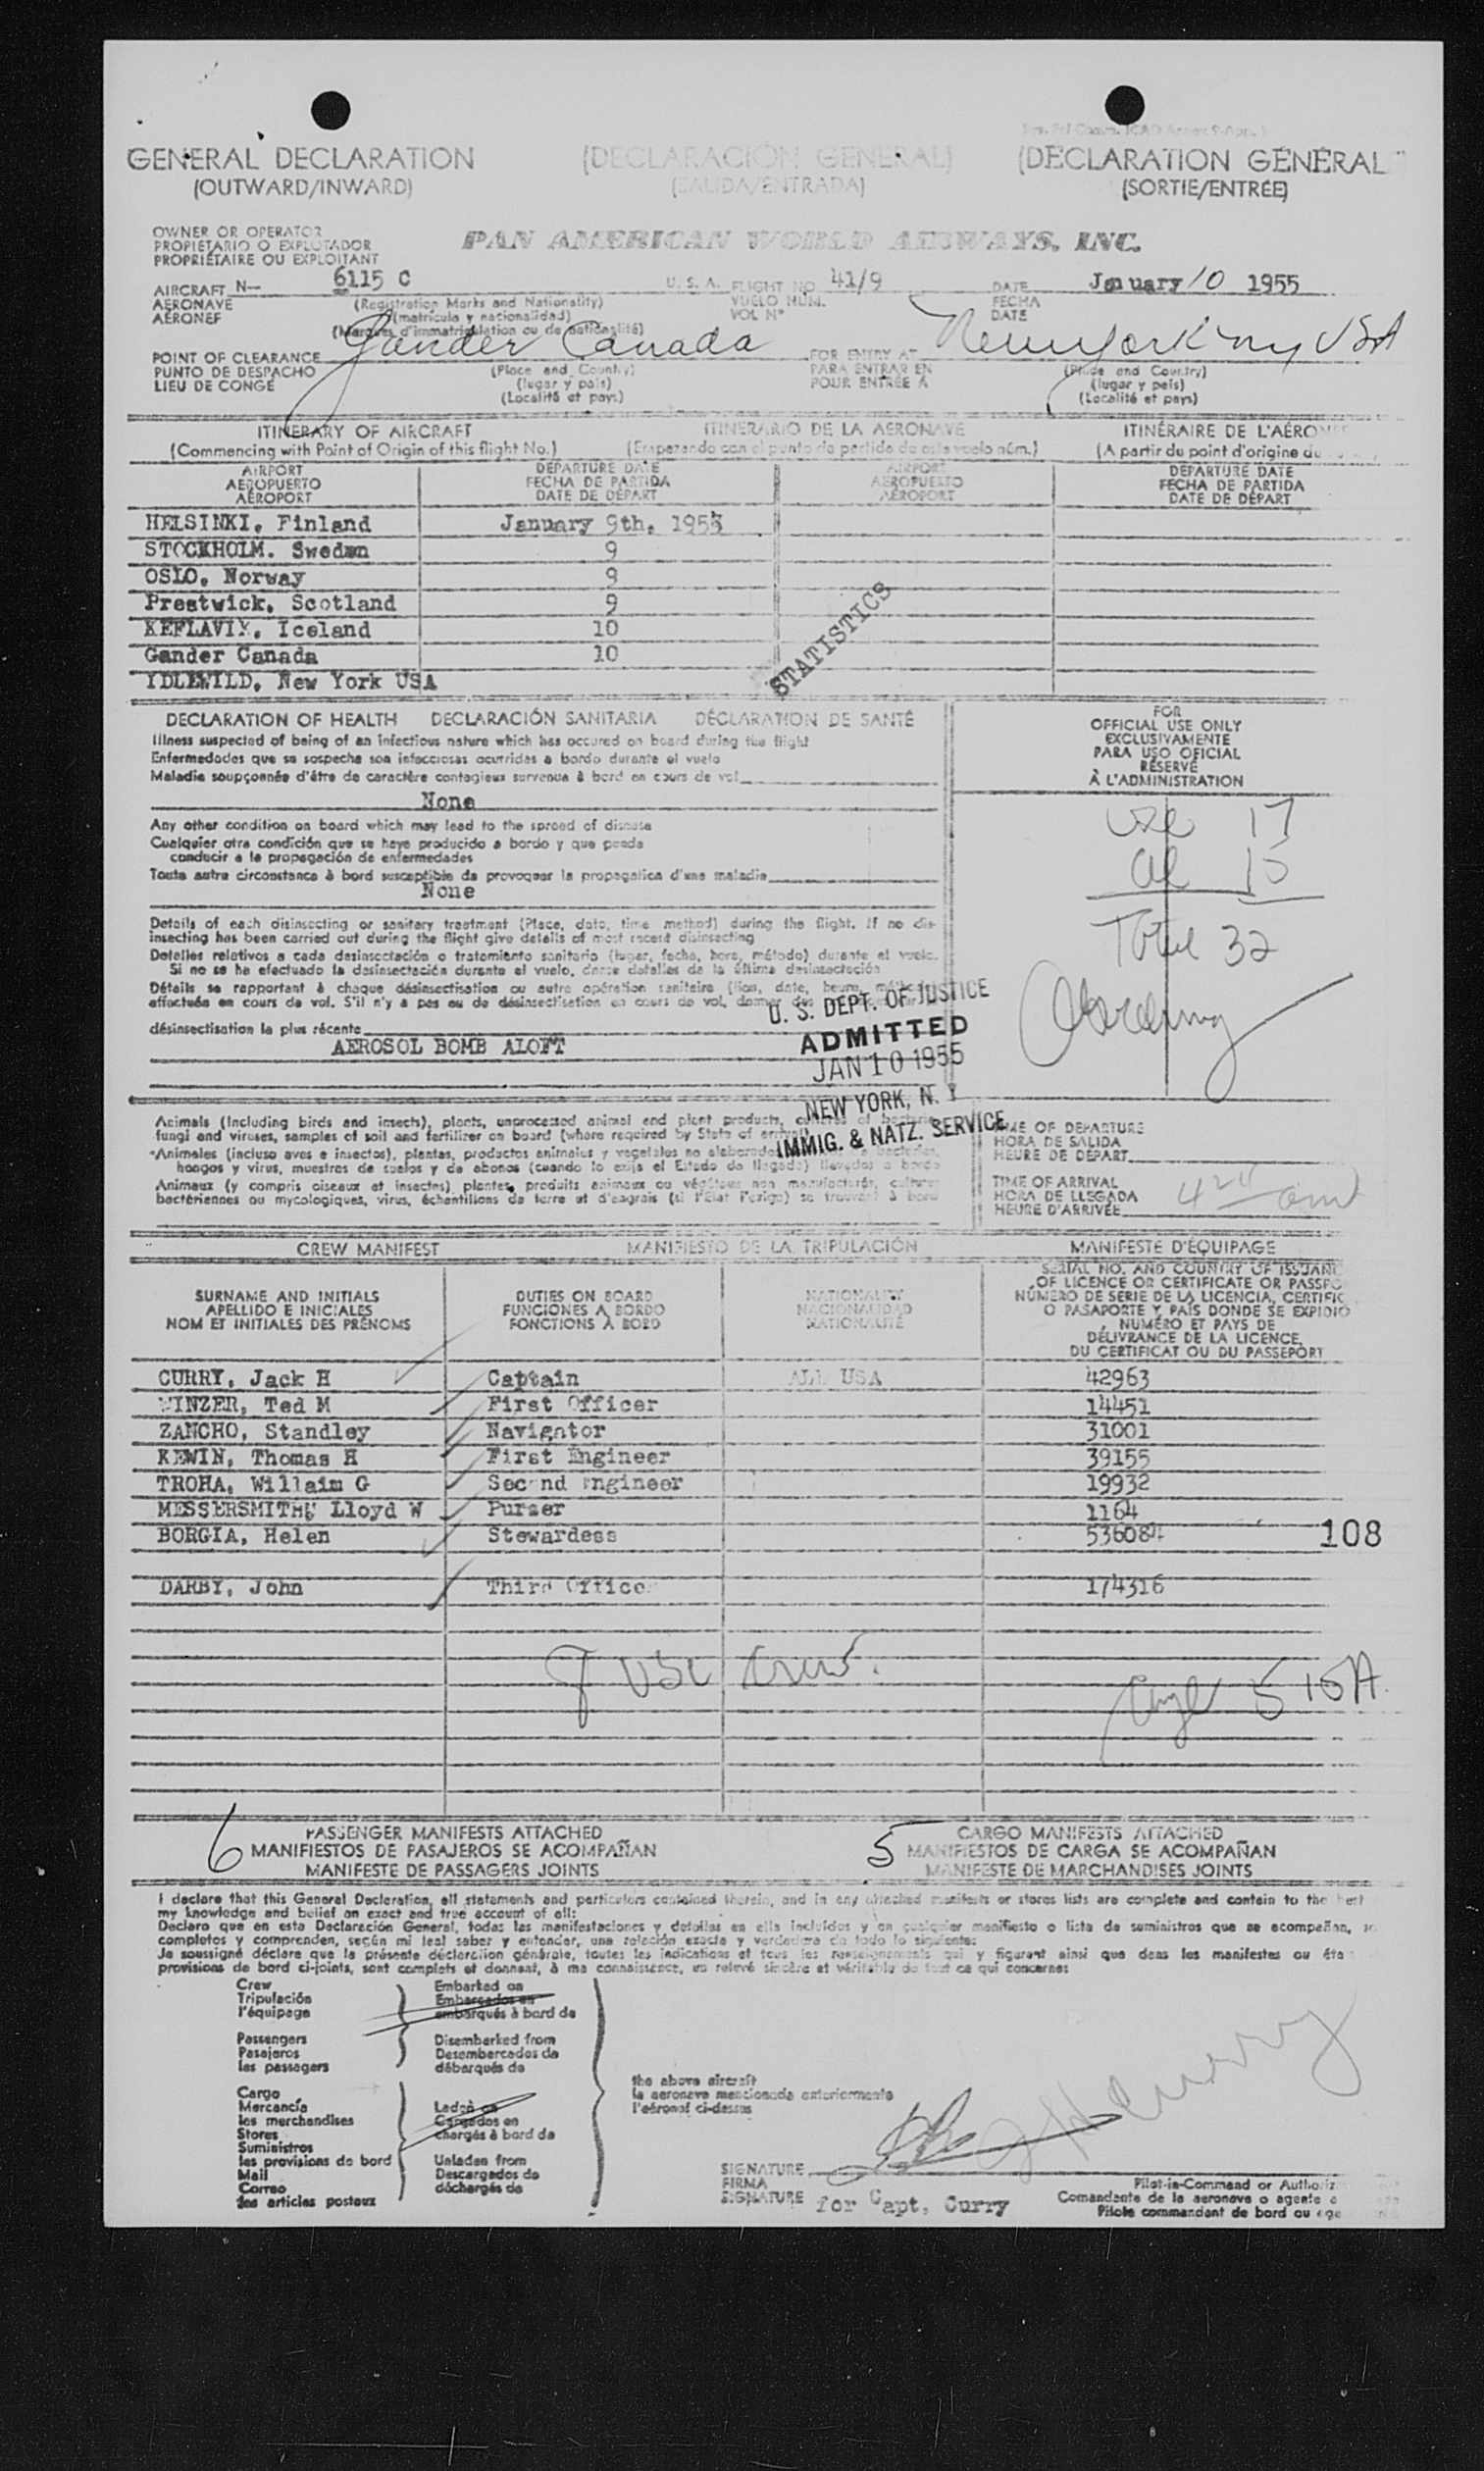 GENERAL DECLARATION (DECLARACIÓN GENERAL) (DÉCLARATION GÉNÉRAL
(OUTWARD/INWARD) (SALIDA/ENTRADA) (SORTIE/ENTRÉE)
OWNER OR OPERATOR
PROPIETARIO O EXPLOTADOR
PROPRIÉTAIRE OU EXPLOITANT
PAN AMERICAN WORLD AIRWAYS, INC.
AIRCRAFT N— 6115 C U. S. A. FLIGHT NO 41/9 DATE January 10 1955
AERONAVE (Registration Marks and Nationality) VUELO NUM. FECHA
AÉRONEF (matrícula y nacionalidad) VOL Nº DATE
(Marques d'immatriculation ou de nationalité)
POINT OF CLEARANCE Gander Canada FOR ENTRY AT New York NY USA
PUNTO DE DESPACHO (Place and Country) PARA ENTRAR EN (Place and Country)
LIEU DE CONGÉ (lugar y país) POUR ENTRÉE À (lugar y país)
(Localité et pays) (Localité et pays)
ITINERARY OF AIRCRAFT ITINERARIO DE LA AERONAVE ITINÉRAIRE DE L'AÉRO
(Commencing with Point of Origin of this flight No.) (Empezando con el punto de partida de este vuelo núm.) (A partir du point d'origine du
AIRPORT DEPARTURE DATE AIRPORT DEPARTURE DATE
AEROPUERTO FECHA DE PARTIDA AEROPUERTO FECHA DE PARTIDA
AÉROPORT DATE DE DÉPART AÉROPORT DATE DE DÉPART
HELSINKI, Finland January 9th, 1955
STOCKHOLM. Sweden 9
OSLO, Norway 9
Prestwick, Scotland 9
KEFLAVIK, Iceland 10
Gander Canada 10
IDLEWILD, New York USA
STATISTICS
DECLARATION OF HEALTH DECLARACIÓN SANITARIA DÉCLARATION DE SANTÉ
Illness suspected of being of an infectious nature which has occured on board during the flight
Enfermedades que se sospecha son infecciosas ocurridas a bordo durante el vuelo
Maladie soupçonnée d'être de caractère contagieux survenue à bord en cours de vol
None
Any other condition on board which may lead to the spread of disease
Cualquier otra condición que se haya producido a bordo y que pueda
conducir a la propagación de enfermedades
Toute autre circonstance à bord susceptible de provoquer la propagation d'une maladie
None
Details of each disinsecting or sanitary treatment (Place, date, time method) during the flight. If no dis-
insecting has been carried out during the flight give details of most recent disinsecting
Detalles relativos a cada desinsectación o tratamiento sanitario (lugar, fecha, hora, método) durante el vuelo.
Si no se ha efectuado la desinsectación durante el vuelo, dense detalles de la última desinsectación
Détails se rapportant à chaque désinsectisation ou autre opération sanitaire (lieu, date, heure,
effectuée en cours de vol. S'il n'y a pas eu de désinsectisation en cours de vol, donner des
désinsectisation la plus récente
AEROSOL BOMB ALOFT
FOR
OFFICIAL USE ONLY
EXCLUSIVAMENTE
PARA USO OFICIAL
RÉSERVÉ
À L'ADMINISTRATION
USC 17
al 15
Total 32
U. S. DEPT. OF JUSTICE
ADMITTED
JAN 10 1955
NEW YORK, N. Y
IMMIG. & NATZ. SERVICE
Animals (Including birds and insects), plants, unprocessed animal and plant products,
fungi and viruses, samples of soil and fertilizer on board (where required by State of
Animales (incluso aves e insectos), plantas, productos animales y vegetales no elaborados
hongos y virus, muestras de suelos y de abonos (cuando lo exija el Estado de llegada) llevados a bordo
Animaux (y compris oiseaux et insectes) plantes, produits animaux ou végétaux non manufacturés, cultures
bactériennes ou mycologiques, virus, échantillons de terre et d'engrais (si l'État l'exige) se trouvant à bord
TIME OF DEPARTURE
HORA DE SALIDA
HEURE DE DÉPART
TIME OF ARRIVAL
HORA DE LLEGADA
HEURE D'ARRIVÉE
CREW MANIFEST MANIFIESTO DE LA TRIPULACIÓN MANIFESTE D'ÉQUIPAGE
SURNAME AND INITIALS
APELLIDO E INICIALES
NOM ET INITIALES DES PRÉNOMS
DUTIES ON BOARD
FUNCIONES A BORDO
FONCTIONS À BORD
NATIONALITY
NACIONALIDAD
NATIONALITÉ
SERIAL NO. AND COUNTRY OF ISSUANC
OF LICENCE OR CERTIFICATE OR PASSPO
NÚMERO DE SERIE DE LA LICENCIA, CERTIFIC
O PASAPORTE Y PAÍS DONDE SE EXPIDIO
NUMÉRO ET PAYS DE
DÉLIVRANCE DE LA LICENCE,
DU CERTIFICAT OU DU PASSEPORT
CURRY, Jack H Captain ALL USA 42963
WINZER, Ted M First Officer 14451
ZANCHO, Standley Navigator 31001
KEWIN, Thomas H First Engineer 39155
TROHA, Willaim G Second Engineer 19932
MESSERSMITH, Lloyd W Purser 1164
BORGIA, Helen Stewardess 536084 108
DARBY, John Third Office 174316
8 USC Crew.
5 15A
6 PASSENGER MANIFESTS ATTACHED 5 CARGO MANIFESTS ATTACHED
MANIFIESTOS DE PASAJEROS SE ACOMPAÑAN MANIFIESTOS DE CARGA SE ACOMPAÑAN
MANIFESTE DE PASSAGERS JOINTS MANIFESTE DE MARCHANDISES JOINTS
I declare that this General Declaration, all statements and particulars contained therein, and in any attached manifests or stores lists are complete and contain to the best
my knowledge and belief an exact and true account of all:
Declaro que en esta Declaración General, todas las manifestaciones y detalles en ella incluidos y en cualquier manifiesto o lista de suministros que se acompeñan,
completos y comprenden, según mi leal saber y entender, una relación exacta y verdadera de todo lo siguiente:
Je soussigné déclare que la présente déclaration générale, toutes les indications et tous les renseignements qui y figurent ainsi que dans les manifestes ou éta
provisions de bord ci-joints, sont complets et donnent, à ma connaissance, un relevé sincère et véritable de tout ce qui concerne:
Crew
Tripulación
l'équipage
Passengers
Pasajeros
les passagers
Embarked on
Embarcados en
embarqués à bord de
Disembarked from
Desembarcados de
débarqués de
Cargo
Mercancía
les merchandises
Stores
Suministros
les provisions de bord
Mail
Correo
des articles postaux
Laden on
Cargados en
chargés à bord de
Unladen from
Descargados de
déchargés de
the above aircraft
la aeronave mencionada anteriormente
l'aéronef ci-dessus
JHCurry
SIGNATURE
FIRMA
SIGNATURE
for Capt, Curry
Pilot-in-Command or Authoriz
Comandante de la aeronave o agente a
Pilote commandant de bord ou age